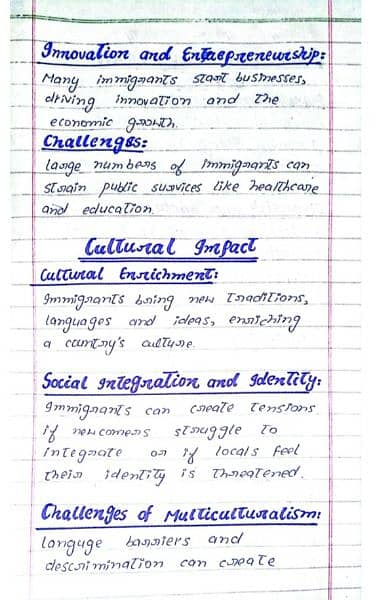 Innovation and Entrepreneurship:
Many immigrants start businesses,
driving innovation and the
economic growth.
Challenges:
large numbers of Immigrants can
strain public survices like healthcare
and education.
Cultural Impact
Cultural Enrichment:
Immigrants bring new traditions,
languages and ideas, enriching
a country's culture.
Social Integration and Identity:
Immigrants can create tensions
if newcomers struggle to
integrate or if locals feel
their identity is threatened.
Challenges of Multiculturalism:
languge barriers and
descrimination can create